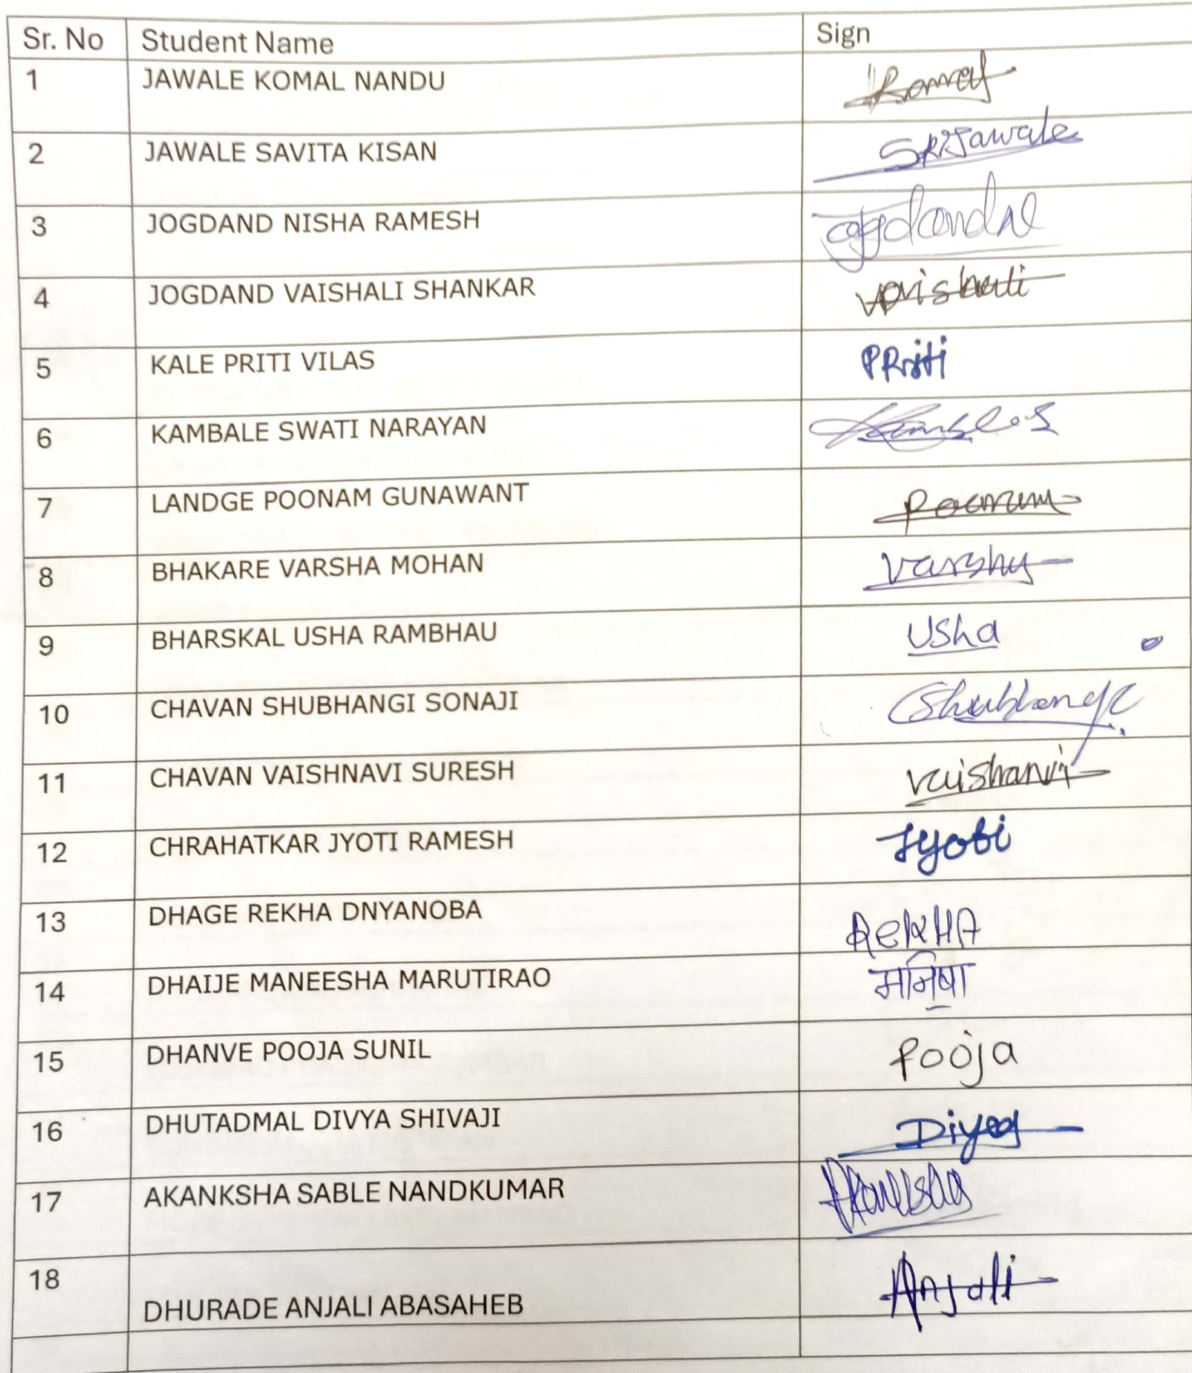 Sr. No Student Name Sign
1 JAWALE KOMAL NANDU Komal
2 JAWALE SAVITA KISAN
3 JOGDAND NISHA RAMESH
4 JOGDAND VAISHALI SHANKAR Vaishali
5 KALE PRITI VILAS PRiti
6 KAMBALE SWATI NARAYAN
7 LANDGE POONAM GUNAWANT Poonam
8 BHAKARE VARSHA MOHAN Varsha
9 BHARSKAL USHA RAMBHAU Usha
10 CHAVAN SHUBHANGI SONAJI
11 CHAVAN VAISHNAVI SURESH Vaishanvi
12 CHRAHATKAR JYOTI RAMESH Jyoti
13 DHAGE REKHA DNYANOBA ReKHA
14 DHAIJE MANEESHA MARUTIRAO मनिषा
15 DHANVE POOJA SUNIL Pooja
16 DHUTADMAL DIVYA SHIVAJI
17 AKANKSHA SABLE NANDKUMAR
18 DHURADE ANJALI ABASAHEB Anjali